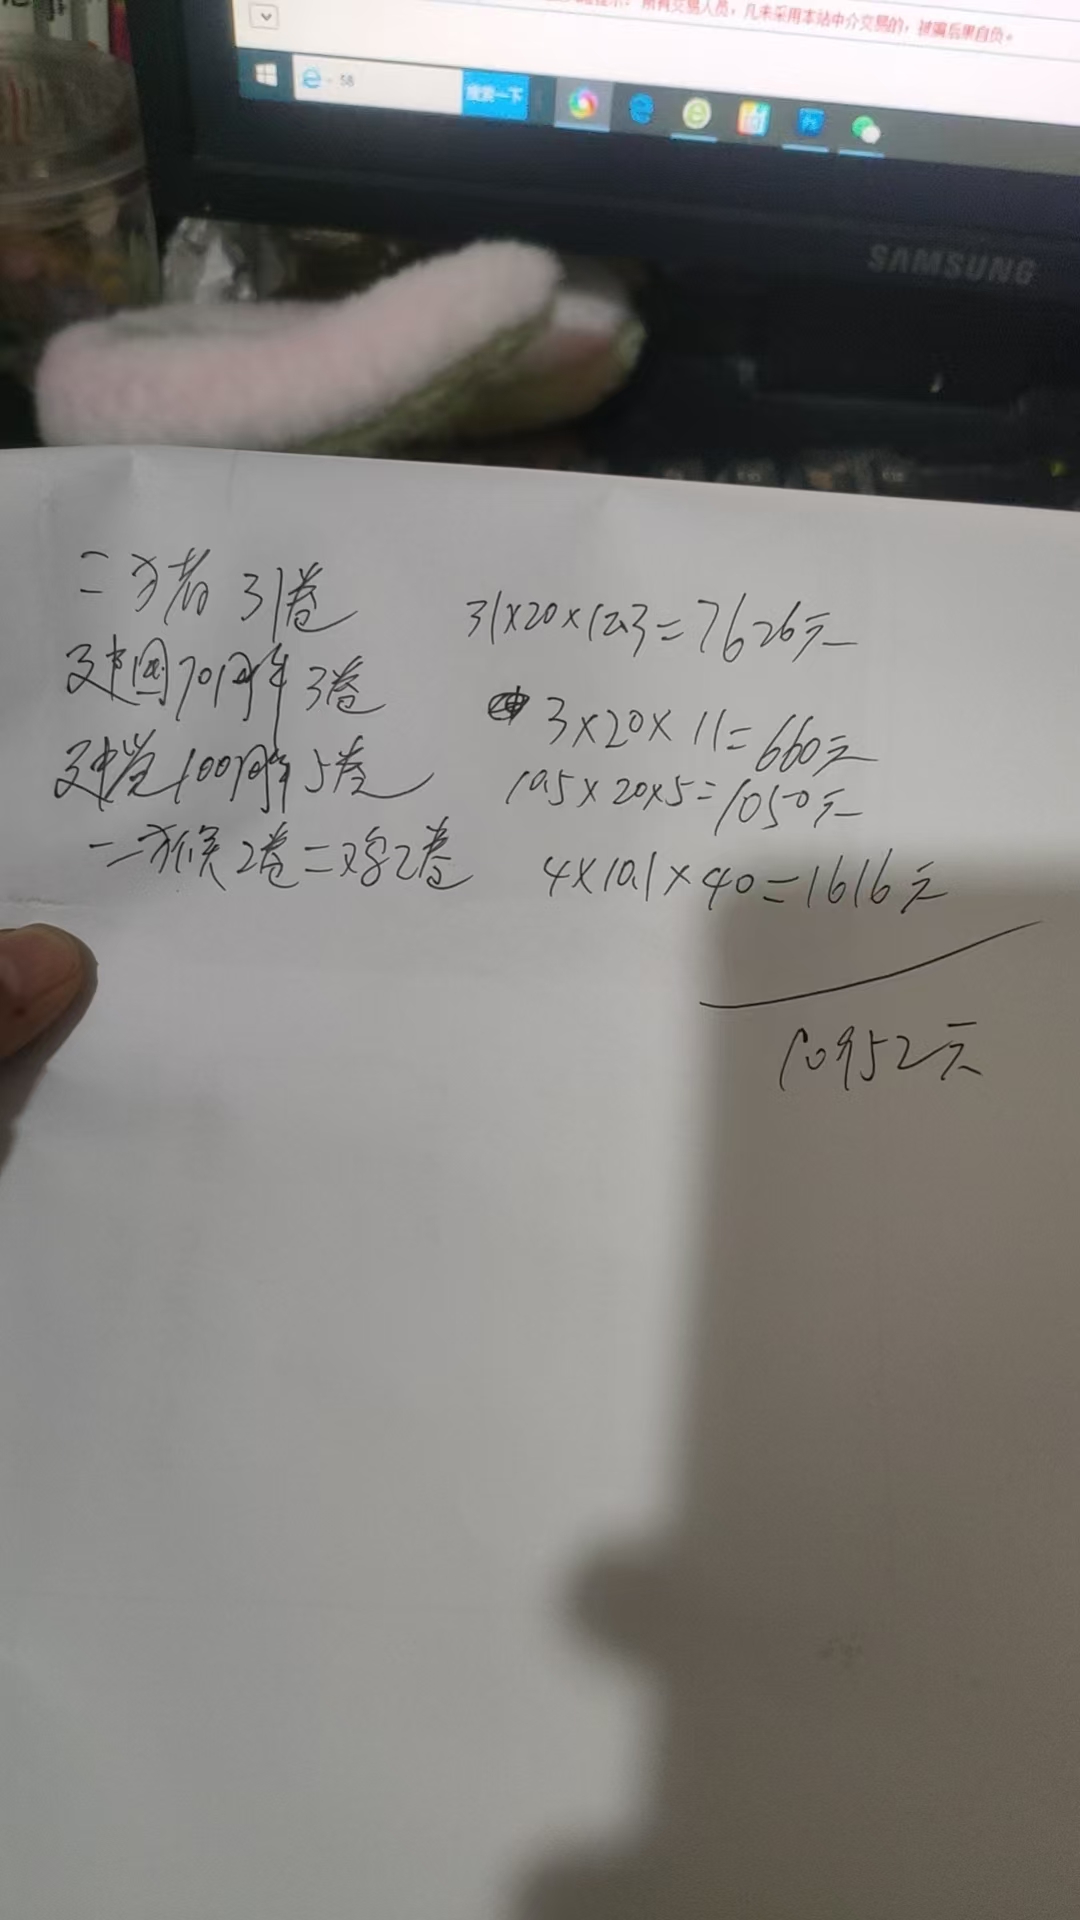 所有交易人员，凡未采用本站中介交易的，被骗后果自负。
58
搜索一下
SAMSUNG
二猪 31卷
31×20×12.3=7626元
建国70周年 3卷
3×20×11=660元
建党100周年 5卷
10.5×20×5=1050元
二猴2卷二鸡2卷
4×10.1×40=1616元
10952元